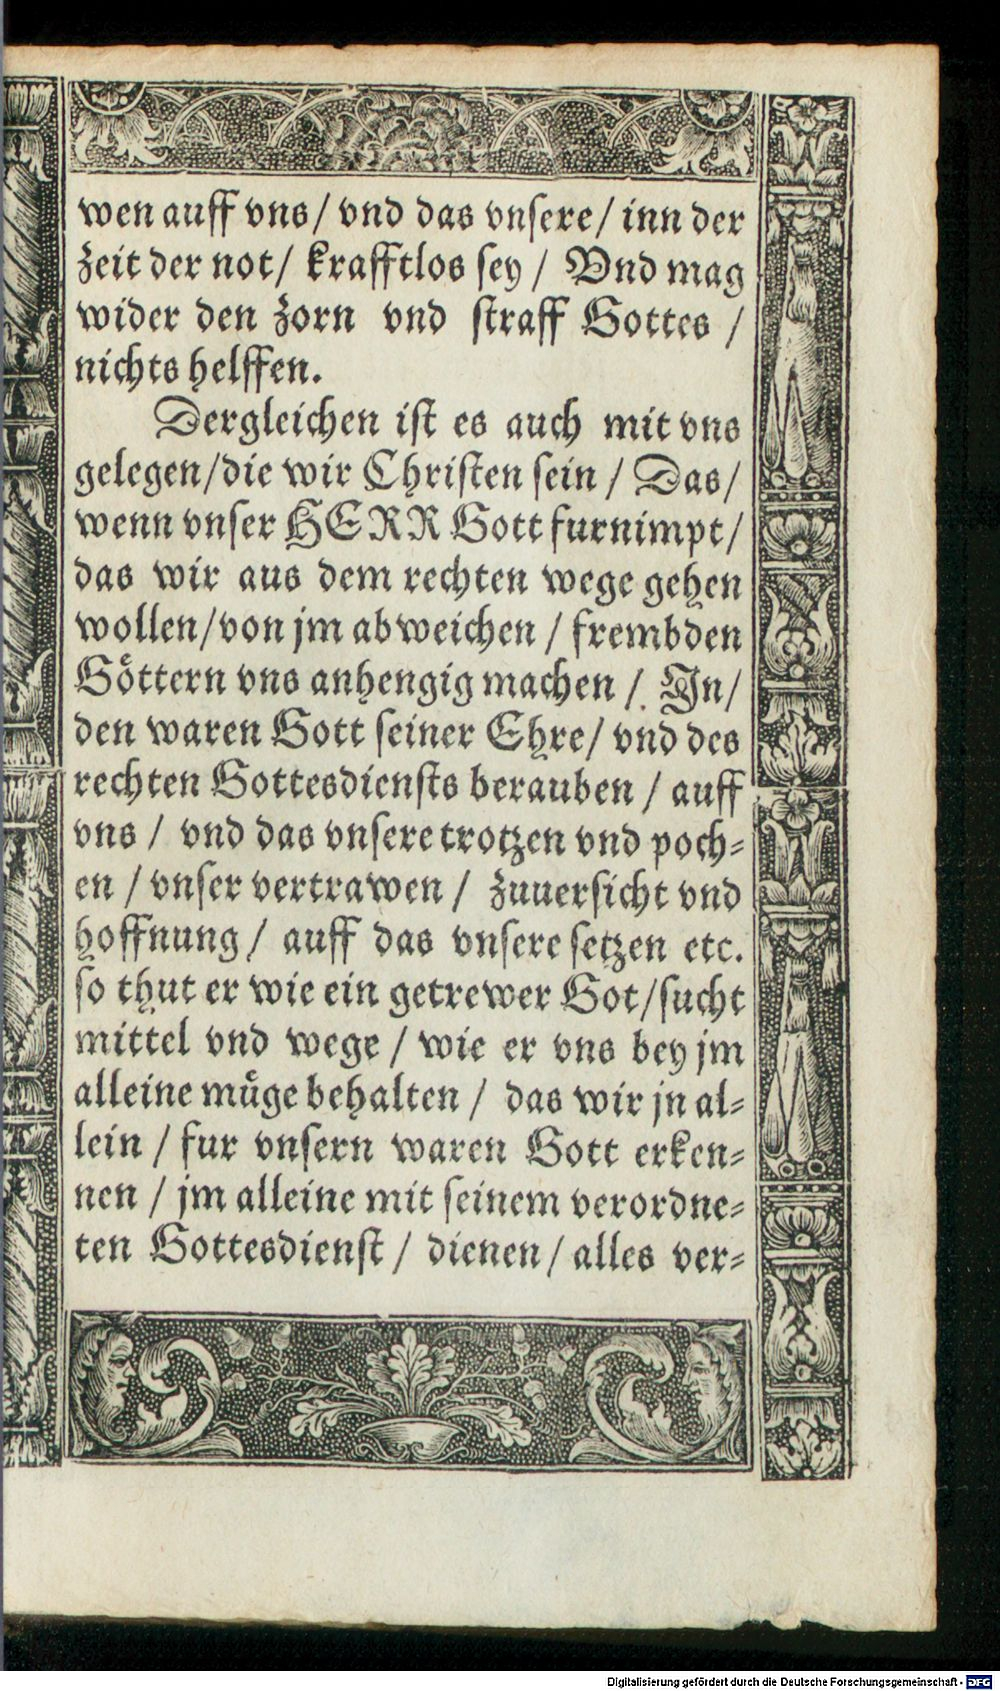 wen auff vns / vnd das vnsere / inn der
zeit der not / krafftlos sey / Vnd mag
wider den zorn vnd straff Gottes /
nichts helffen.
Dergleichen ist es auch mit vns
gelegen / die wir Christen sein / Das /
wenn vnser HERR Gott furnimpt /
das wir aus dem rechten wege gehen
wollen / von jm abweichen / frembden
Göttern vns anhengig machen / Jn /
den waren Gott seiner Ehre / vnd des
rechten Gottesdiensts berauben / auff
vns / vnd das vnsere trotzen vnd poch-
en / vnser vertrawen / zuuersicht vnd
hoffnung / auff das vnsere setzen etc.
so thut er wie ein getrewer Got / sucht
mittel vnd wege / wie er vns bey jm
alleine müge behalten / das wir jn al-
lein / fur vnsern waren Gott erken-
nen / jm alleine mit seinem verordne-
ten Gottesdienst / dienen / alles ver-
Digitalisierung gefördert durch die Deutsche Forschungsgemeinschaft - DFG